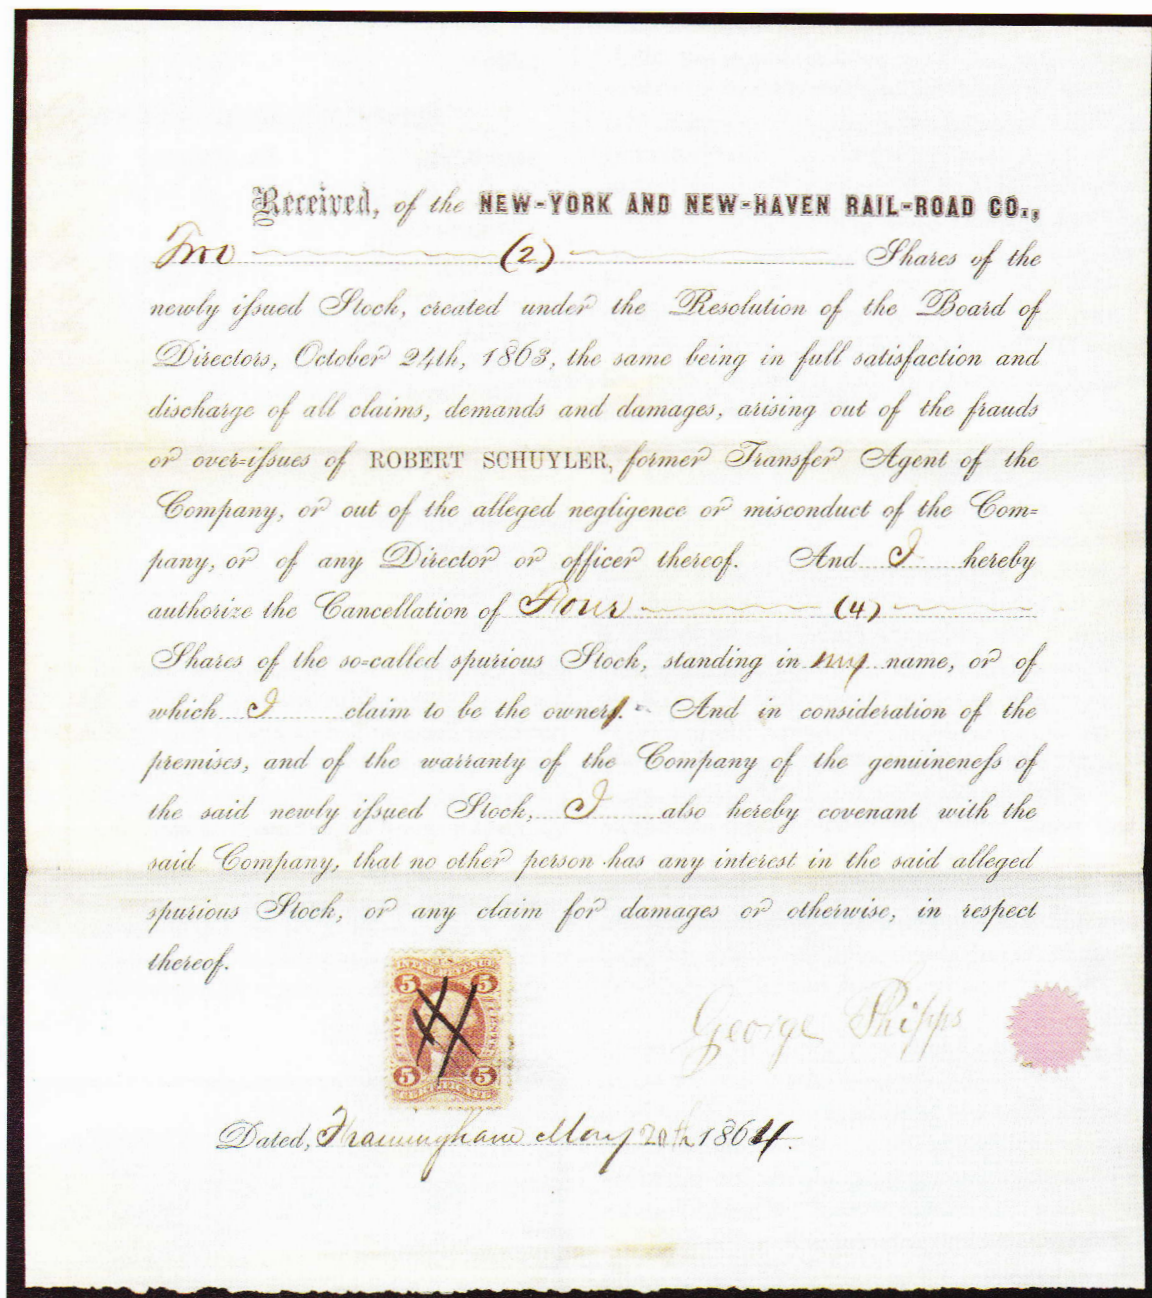 Received, of the NEW-YORK AND NEW-HAVEN RAIL-ROAD CO.,
Two (2) Shares of the
newly issued Stock, created under the Resolution of the Board of
Directors, October 24th, 1863, the same being in full satisfaction and
discharge of all claims, demands and damages, arising out of the frauds
or over=issues of ROBERT SCHUYLER, former Transfer Agent of the
Company, or out of the alleged negligence or misconduct of the Com=
pany, or of any Director or officer thereof. And I hereby
authorize the Cancellation of Four (4)
Shares of the so=called spurious Stock, standing in my name, or of
which I claim to be the owner. And in consideration of the
premises, and of the warranty of the Company of the genuineness of
the said newly issued Stock, I also hereby covenant with the
said Company, that no other person has any interest in the said alleged
spurious Stock, or any claim for damages or otherwise, in respect
thereof.
5 5
FIVE CENTS
5 5
CERTIFICATE
George Phipps
Dated, Framingham May 20th 1864.